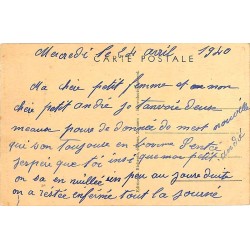 Mercredi le 24 avril 1940
CARTE POSTALE
Ma chére petit femme et mon
chére petit andré je t'envoie deux
meaux pour de donnée de mest nouvélle
qui son toujours en bonne Santée
J'espér que toi insi que mon petit andré
on va en un peu au jourd'uits
on a restée enfermée tout la journé